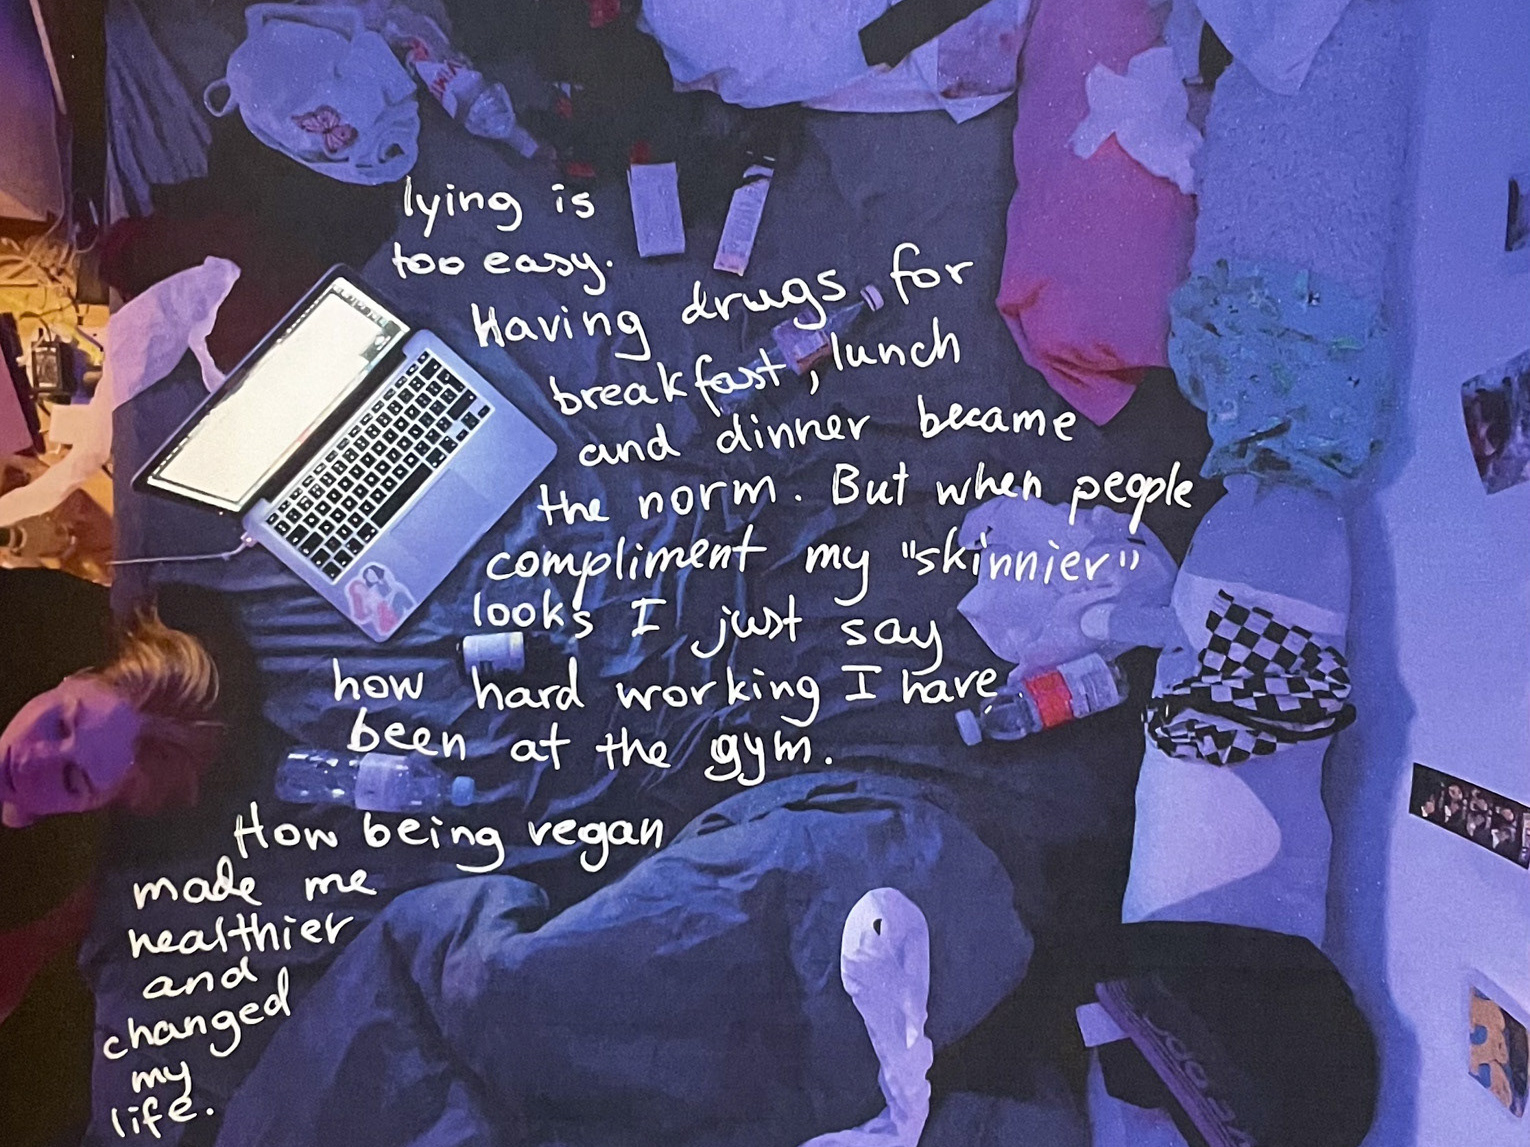 lying is
too easy.
Having drugs for
breakfast, lunch
and dinner became
the norm. But when people
compliment my "skinnier"
looks I just say
how hard working I have
been at the gym.
How being vegan
made me
healthier
and
changed
my
life.